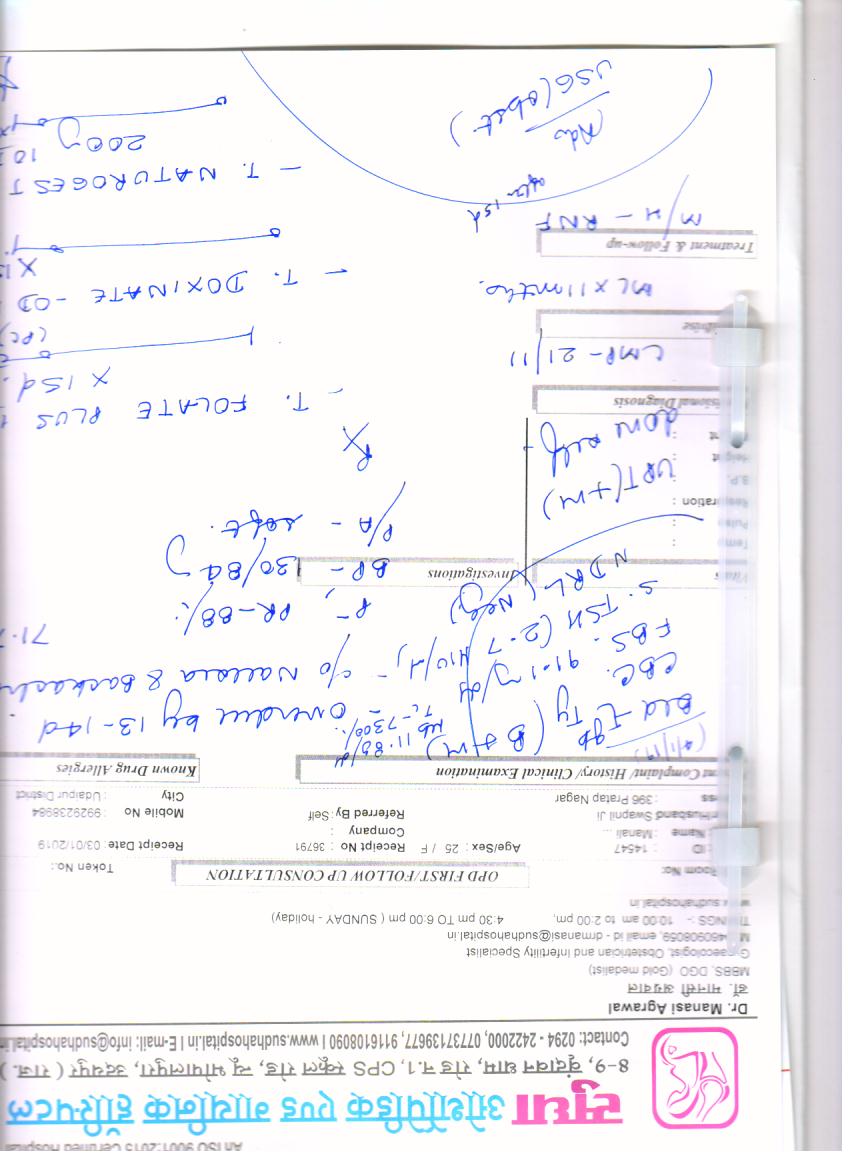 An ISO 9001:2015 Certified Hospital
सुधा ऑर्थोपेडिक एण्ड गायनिक हॉस्पिटल
8-9, वृंदावन धाम, रोड न.1, CPS स्कूल रोड, न्यू भोपालपुरा, उदयपुर ( राज. )
Contact: 0294 - 2422000, 07737139677, 9116118090 I www.sudhahospital.in I E-mail: info@sudhahospital.in
Dr. Manasi Agrawal
डॉ. मानसी अग्रवाल
MBBS, DGO (Gold medalist)
Gynaecologist, Obstetrician and Infertility Specialist
9460908059, email id - drmanasi@sudhahospital.in
TIMINGS :- 10:00 am to 2:00 pm, 4:30 pm TO 6:00 pm ( SUNDAY - holiday)
www.sudhahospital.in
Room No:
OPD FIRST/FOLLOW UP CONSULTATION
Token No.:
ID : 14547
Age/Sex : 25 / F
Receipt No : 36791
Receipt Date : 03/01/2019
Name : Manali ...
Company :
Husband Swapnil Ji
Referred By : Self
Mobile No : 9929238984
: 396 Pratap Nagar
City : Udaipur District
Complaint/ History/ Clinical Examination
Known Drug Allergies
Bld gp Ty (B +ve)
Hb 11.8
TLC - 7300
- Overdue by 13-14d
CBC
FBS - 91.1
- c/o Nausea & Backache
S. TSH (2.7
71.
VDRL (Neg)
P - PR - 88/.
Vitals
Investigations
BP - 130/84
Temp :
Pulse :
P/A - soft.
Respiration :
B.P. :
UPT (+ve)
Height :
done self
Rx
Provisional Diagnosis
- T. FOLATE PLUS
X 15d.
LMP - 21/11
(PC)
ML x 11 mths.
- T. DOXINATE - OD
X 15
Treatment & Follow-up
M/H - RNF
after 15d
- T. NATUROGEST
200
10
Adv
USG (obst)